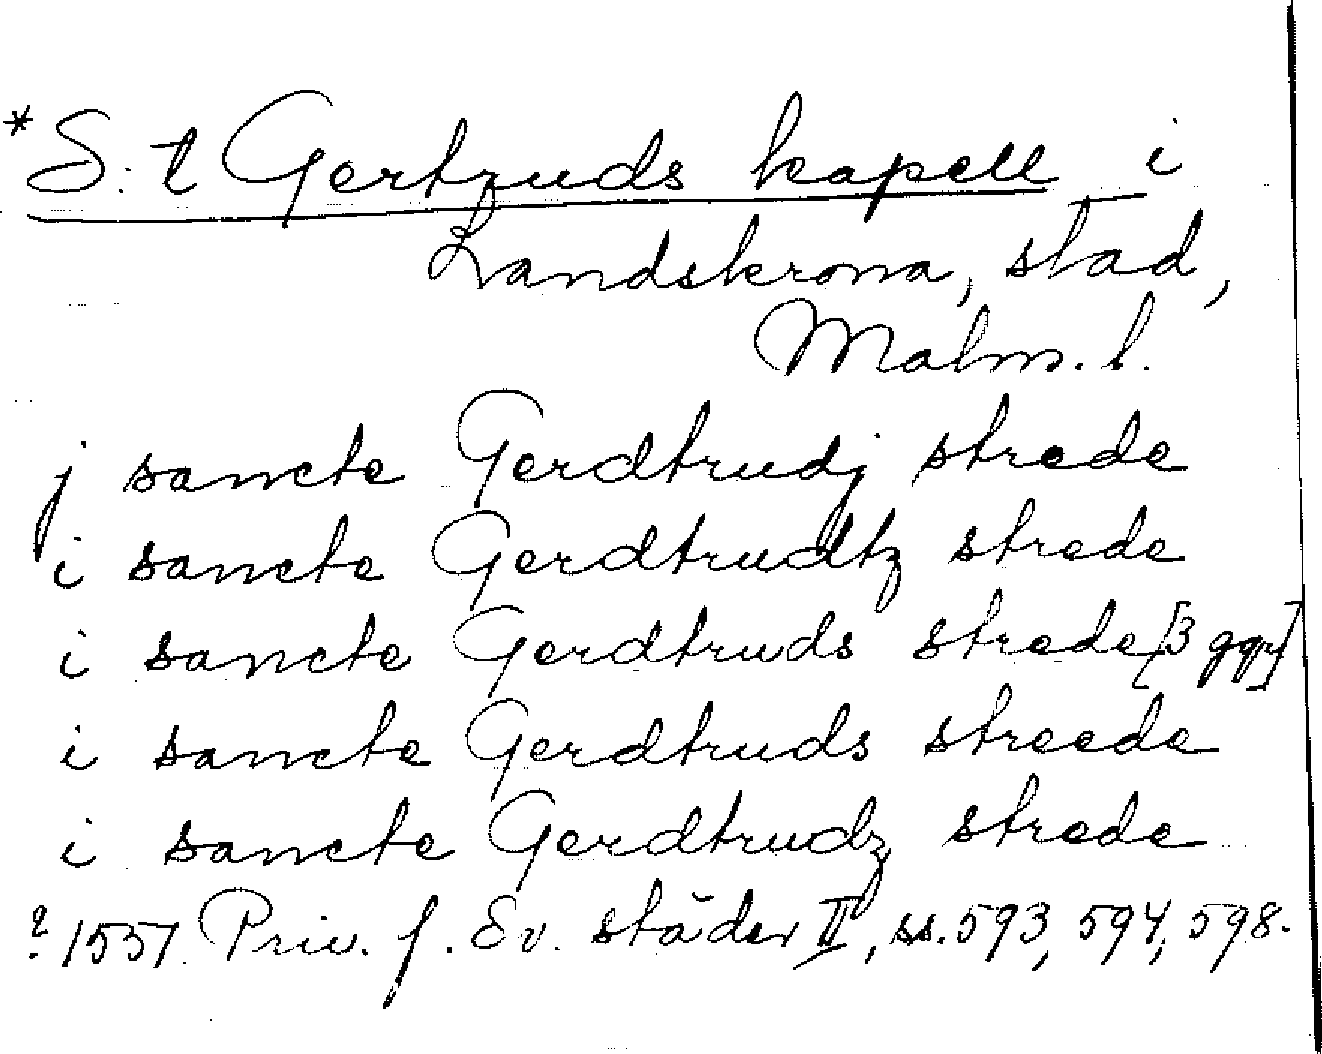 *S:t Gertruds kapell i
Landskrona, stad,
Malm. l.
j sancte Gerdtrudj strede
i sancte Gerdtrudtz strede
i sancte Gerdtruds strede [3 ggr]
i sancte Gerdtruds streede
i sancte Gerdtrudz strede
? 1551 Priv. f. Sv. städer II, ss. 593, 594, 598.